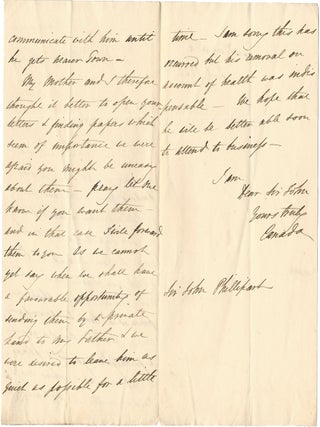 communicate with him until
he gets nearer Town –
My Mother and I therefore
thought it better to open your
letters & finding papers which
seem of importance we were
afraid you might be uneasy
about them – pray let me
know if you want them
and in that case I will forward
them to you As we cannot
yet say when we shall have
a favourable opportunity of
sending them by a private
hand to my Father & we
were desired to leave him as
quiet as possible for a little
time – I am sorry this has
occurred but his removal on
account of health was indis
pensable – We hope that
he will be better able soon
to attend to business –
I am
Dear Sir John
Yours truly
Sir John Phillipart